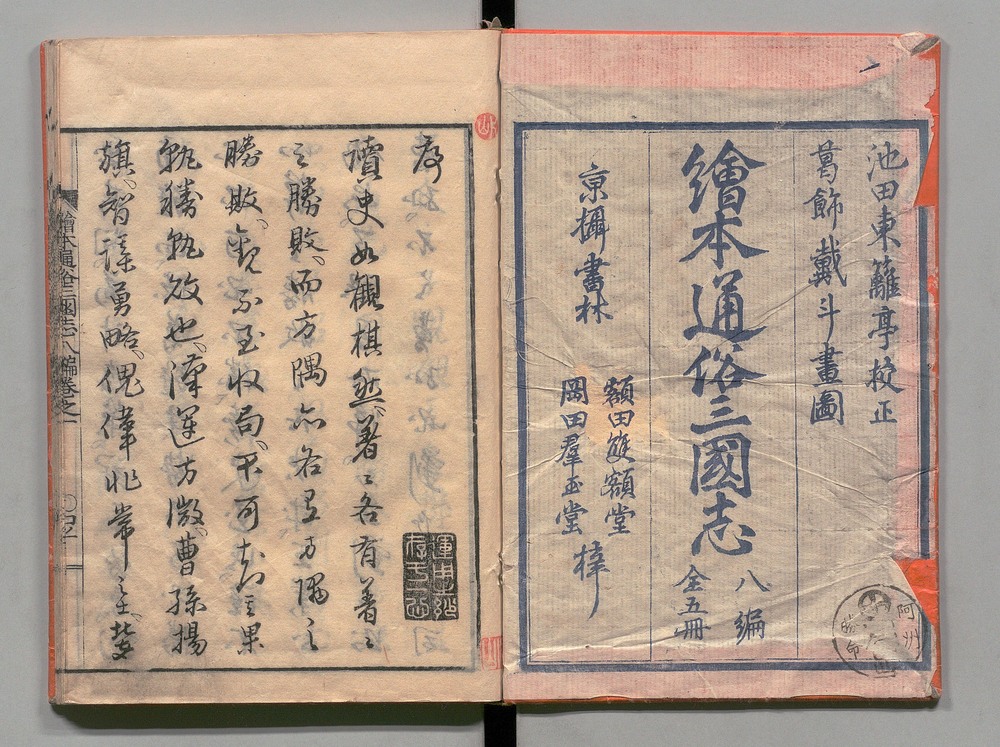 池田東籬亭校正
葛飾戴斗畫圖
繪本通俗三國志
八編
全五冊
京攝書林
額田延額堂
岡田羣玉堂
梓
阿州
序
讀史如觀棋然、着々各有着々
之勝敗、而方隅亦各有方隅之
勝敗、観不至收局、不可知其果
孰勝孰敗也、漢運方微、曹孫揚
旗、智謀勇略、傀偉非常之士、
繪本通俗三國志八編卷之一